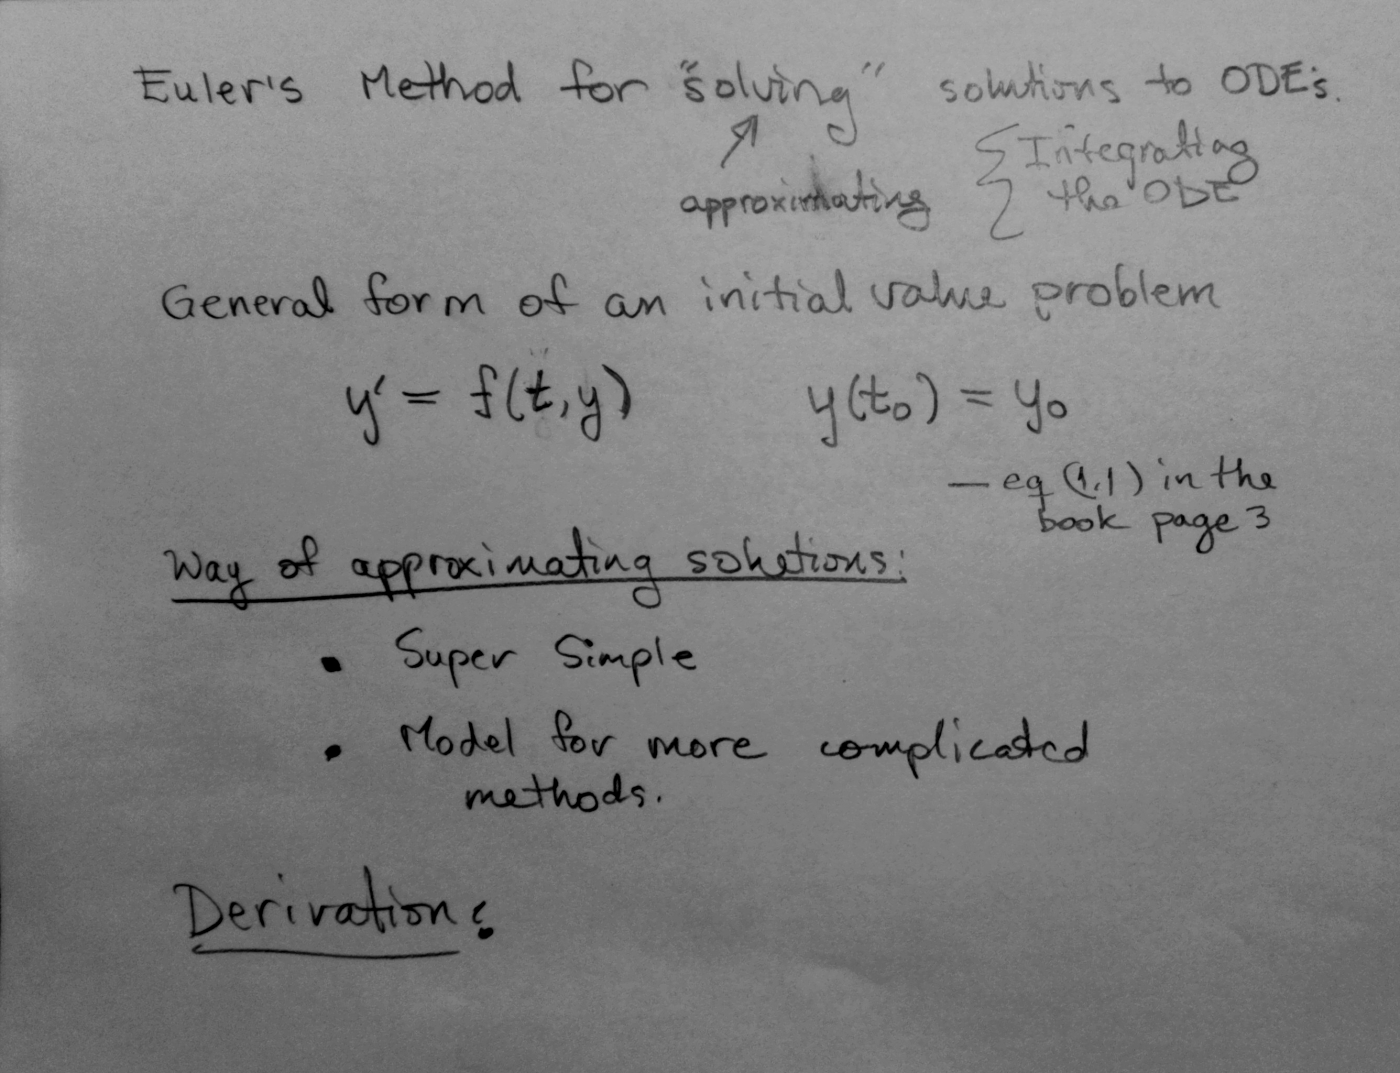 Euler's Method for "solving" solutions to ODE's.
approximating { Integrating
the ODE
General form of an initial value problem
y' = f(t,y) y(t₀) = y₀
— eq (1.1) in the
book page 3
Way of approximating solutions:
• Super Simple
• Model for more complicated
methods.
Derivation: